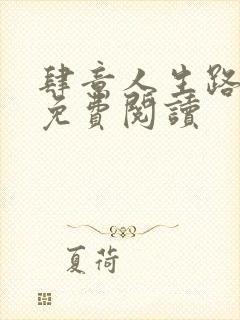 肆意人生路
免費閱讀
夏荷